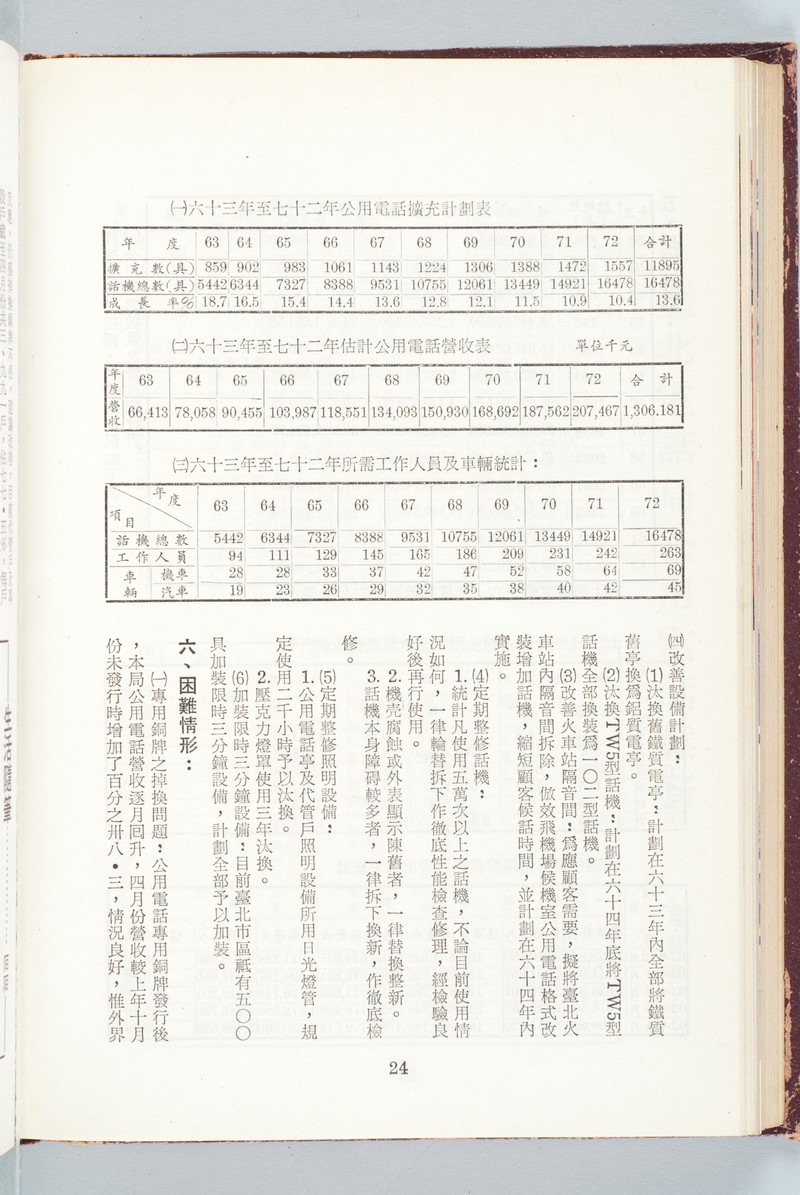 ㈠六十三年至七十二年公用電話擴充計劃表
年 度 63 64 65 66 67 68 69 70 71 72 合計
擴充數(具) 859 902 983 1061 1143 1224 1306 1388 1472 1557 11895
話機總數(具) 5442 6344 7327 8388 9531 10755 12061 13449 14921 16478 16478
成長率% 18.7 16.5 15.4 14.4 13.6 12.8 12.1 11.5 10.9 10.4 13.6
㈡六十三年至七十二年估計公用電話營收表 單位千元
年度 63 64 65 66 67 68 69 70 71 72 合計
營收 66,413 78,058 90,455 103,987 118,551 134,093 150,930 168,692 187,562 207,467 1,306.181
㈢六十三年至七十二年所需工作人員及車輛統計：
項目 年度 63 64 65 66 67 68 69 70 71 72
話機總數 5442 6344 7327 8388 9531 10755 12061 13449 14921 16478
工作人員 94 111 129 145 165 186 209 231 242 263
車輛 機車 28 28 33 37 42 47 52 58 64 69
汽車 19 23 26 29 32 35 38 40 42 45
㈣改善設備計劃：
⑴汰換舊鐵質電亭：計劃在六十三年內全部將鐵質
舊亭換爲鋁質電亭。
⑵汰換TW5型話機：計劃在六十四年底將TW5型
話機全部換裝爲一〇二型話機。
⑶改善火車站隔音間：爲應顧客需要，擬將臺北火
車站內隔音間拆除，倣效飛機場候機室公用電話格式改
裝增加話機，縮短顧客候話時間，並計劃在六十四年內
實施。
⑷定期整修話機：
1.統計凡使用五萬次以上之話機，不論目前使用情
況如何，一律輪替拆下作徹底性能檢查修理，經檢驗良
好後再行使用。
2.機壳腐蝕或外表顯示陳舊者，一律替換整新。
3.話機本身障碍較多者，一律拆下換新，作徹底檢
修。
⑸定期整修照明設備：
1.公用電話亭及代管戶照明設備所用日光燈管，規
定使用二千小時予以汰換。
2.壓克力燈罩使用三年汰換。
⑹加裝限時三分鐘設備：目前臺北市區祗有五〇〇
具加裝限時三分鐘設備，計劃全部予以加裝。
六、困難情形：
㈠專用銅牌之掉換問題：公用電話專用銅牌發行後
，本局公用電話營收逐月囘升，四月份營收較上年十月
份未發行時增加了百分之卅八•三，情況良好，惟外界
24